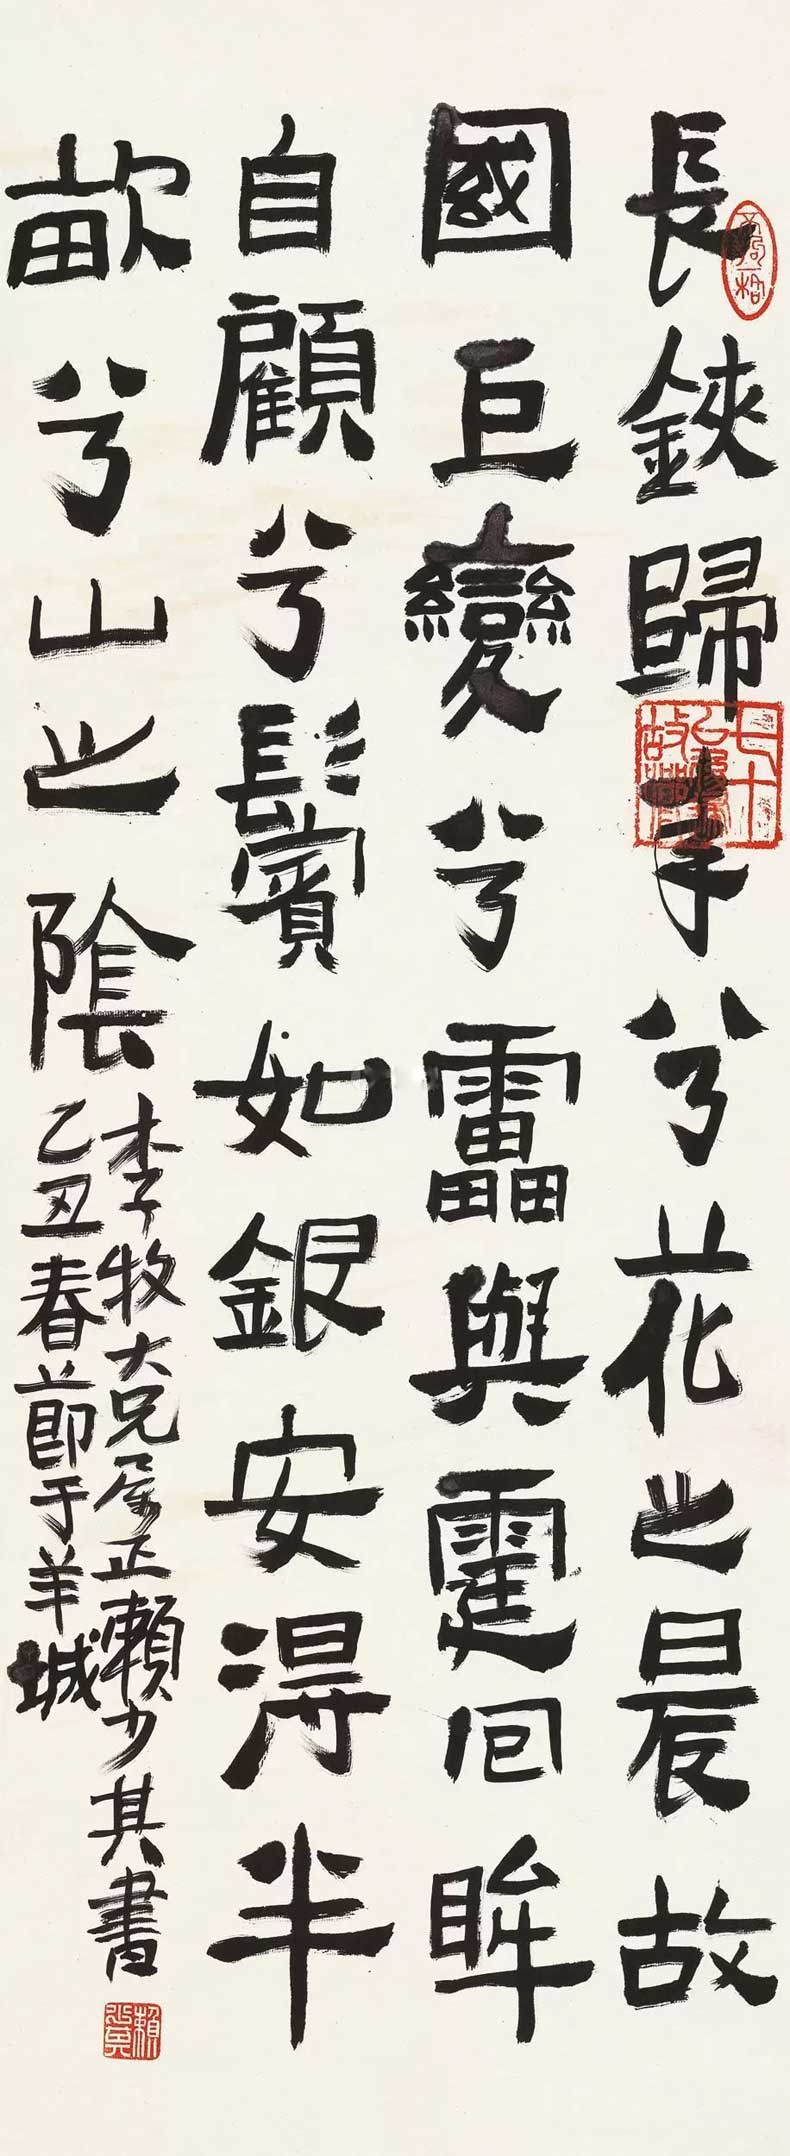 長鋏歸來兮花之晨故
國巨變兮靁與霆回眸
自顧兮鬢如銀安得半
畝兮山之陰
李牧大兄屬正賴少其書
乙丑春節于羊城